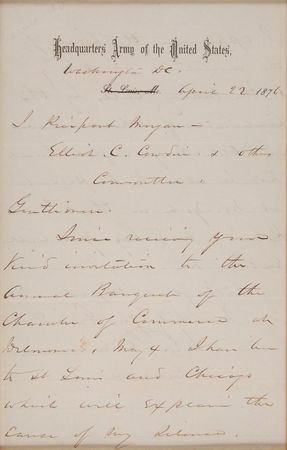 Headquarters Army of the United States.
Washington DC.
St. Louis, Mo. April 22 1876
J. Pierpont Morgan -
Elliot C. Cowdin & other
Committee.
Gentlemen.
Since receiving your
kind invitation to the
Annual Banquet of the
Chamber of Commerce at
May 4. I have been
to St Louis and Chicago
which will explain the
cause of my silence.